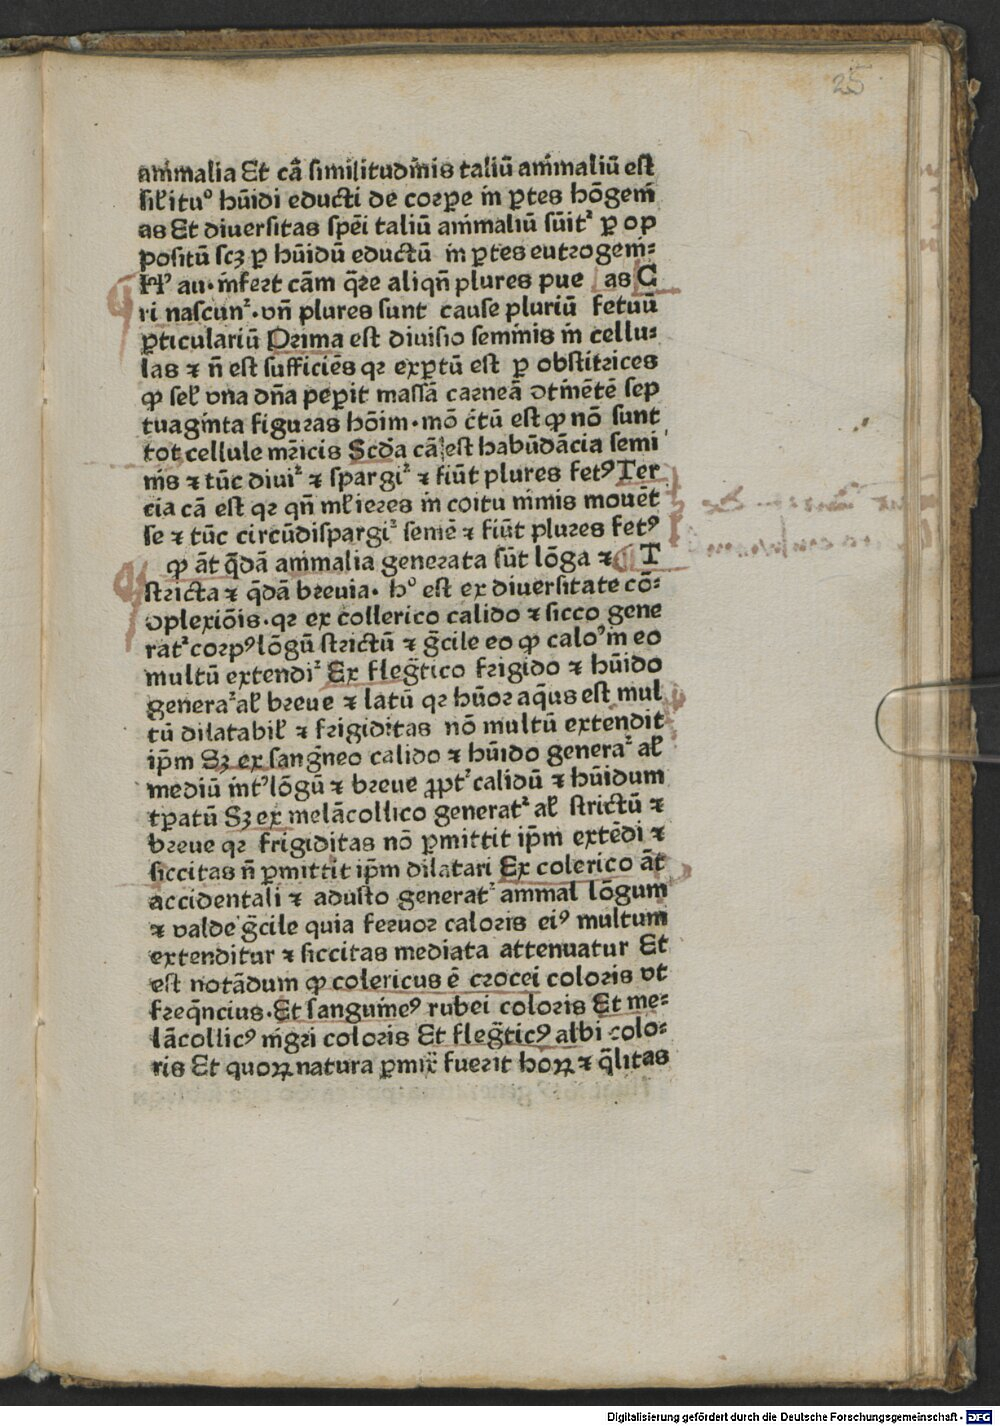 25
animalia Et cā similitudinis taliū animaliū est
sil'itu⁰ hūidi educti de corpe in ꝑtes hōgeni
as Et diuersitas spēi taliū animaliū sūit² ꝑ op
positū scꝫ ꝑ hūidū eductū in ꝑtes eutrogeni⸗
H² au· infert cām q̄re aliqn̄ plures pue as C
ri nascun²·vn̄ plures sunt cause pluriū fetuū
ꝑticulariū Prima est diuisio seminis in cellu⸗
las ⁊ n̄ est sufficiēs qꝛ exꝑtū est ꝑ obstitrices
ꝙ sel' vna dn̄a peꝑit massā carneā ↄtinētē sep
tuaginta figuras hōim·mō c̄tū est ꝙ nō sunt
tot cellule mr̄icis Scd̄a cā est habūdācia semi
nis ⁊ tūc diui² ⁊ spargi² ⁊ fiūt plures fetꝰ Ter
cia cā est qꝛ qn̄ ml'ieres in coitu nimis mouēt
se ⁊ tūc circūdispargi² semē ⁊ fiūt plures fetꝰ
ꝙ āt q̄dā animalia generata sūt lōga ⁊ T
stricta ⁊ q̄dā breuia· h⁰ est ex diuersitate cō⸗
ↄplexiōis·qꝛ ex collerico calido ⁊ sicco gene
rat² corpꝰ lōgū strictū ⁊ ḡcile eo ꝙ calo² in eo
multū extendi² Ex fleg̃tico frigido ⁊ hūido
genera² al' breue ⁊ latū qꝛ hūor aq̄us est mul
tū dilatabil' ⁊ frigiditas nō multū extendit
ip̄m Sꝫ ex sang̃neo calido ⁊ hūido genera² al'
mediū int² lōgū ⁊ breue ꝓpt² calidū ⁊ hūidum
tꝑatū Sꝫ ex melācollico generat² al' strictū ⁊
breue qꝛ frigiditas nō ꝑmittit ip̄m extēdi ⁊
siccitas n̄ ꝑmittit ip̄m dilatari Ex colerico āt
accidentali ⁊ adusto generat² animal lōgum
⁊ valde g̃cile quia feruor caloris eiꝰ multum
extenditur ⁊ siccitas mediata attenuatur Et
est notādum ꝙ colericus ē crocei coloris vt
freq̄ncius·Et sanguineꝰ rubei coloris Et me⸗
lācollicꝰ nigri coloris Et fleg̃ticꝰ albi colo⸗
ris Et quoꝝ natura ꝑmix̄ fuerit hoꝝ ⁊ q̄litas
Digitalisierung gefördert durch die Deutsche Forschungsgemeinschaft - DFG